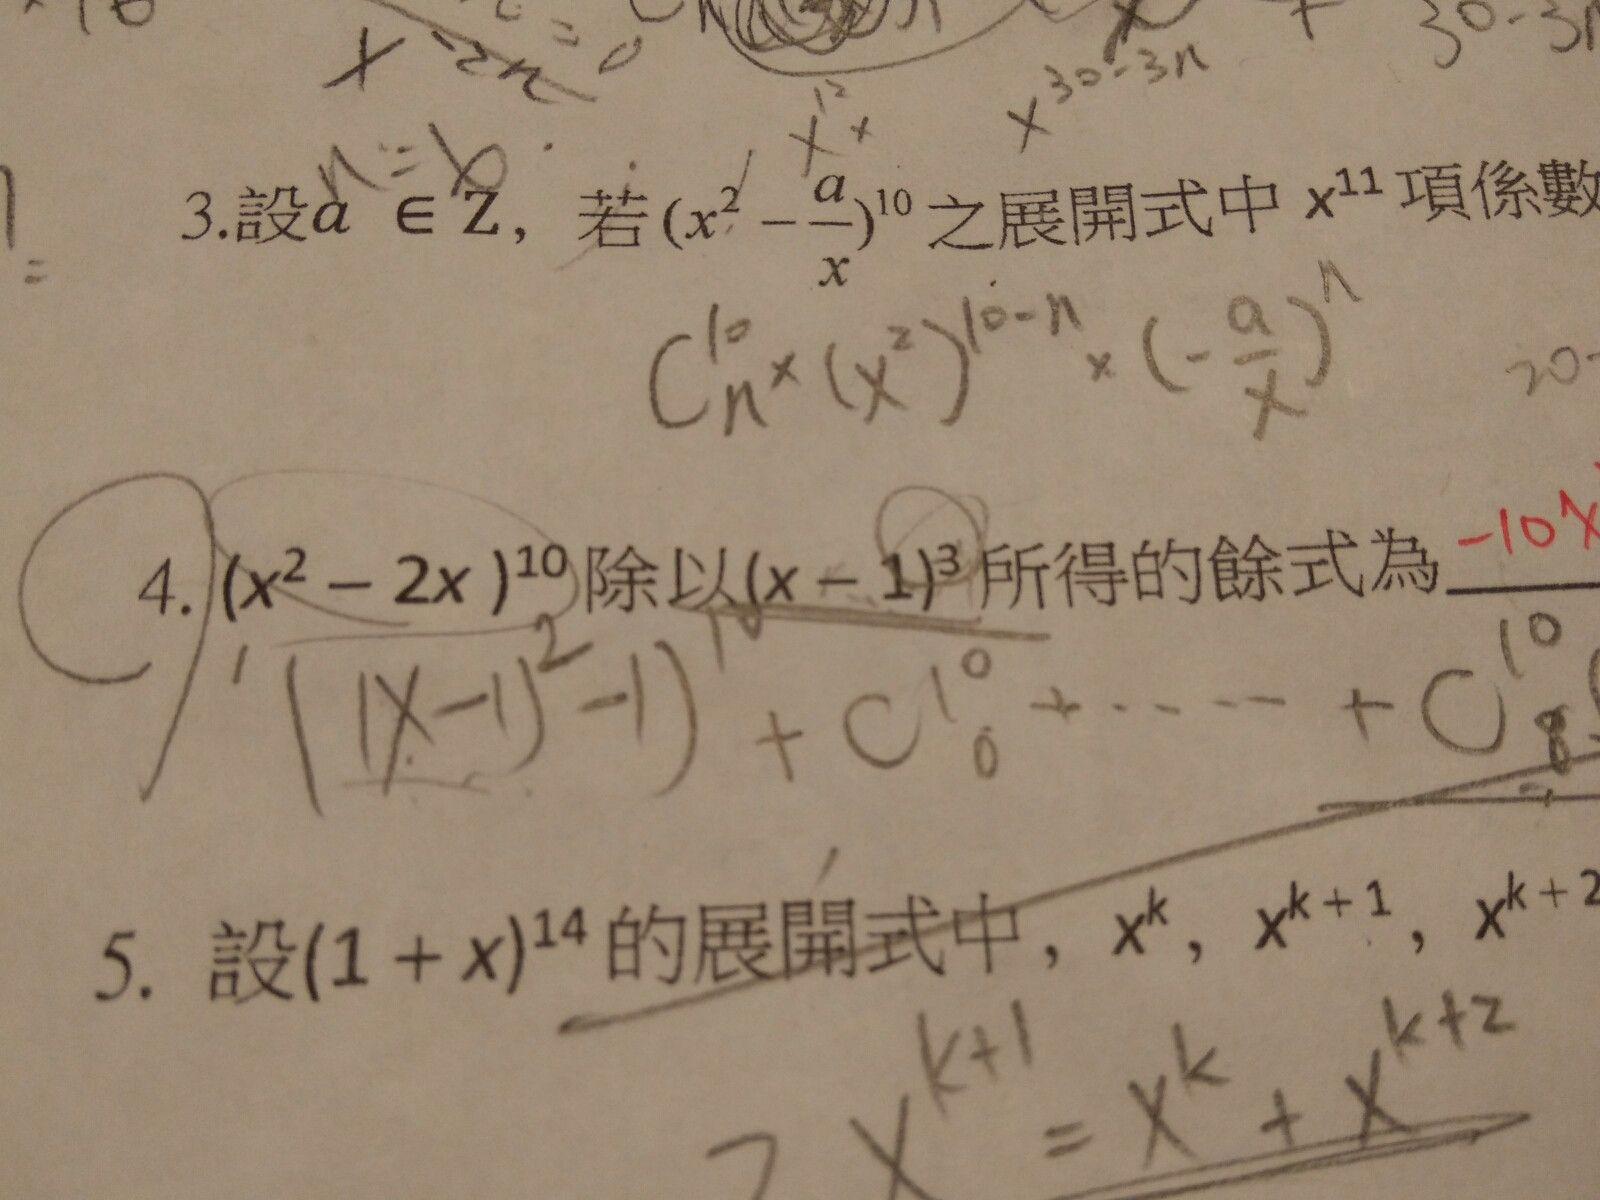 x^2n = 0
x^30-3n
30-3n
x^12 x
n = 6
3.設a ∈ Z，若(x² − a/x)^10 之展開式中 x^11 項係數
C^10_n × (x²)^10-n × (-a/x)^n
20-
4. (x² − 2x )^10 除以(x − 1)³ 所得的餘式為 -10x
((x-1)² -1)^10 + C^10_0 + ..... + C^10_8
5. 設(1 + x)^14 的展開式中，x^k，x^k + 1，x^k + 2
2x^k+1 = x^k + x^k+2